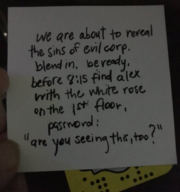 we are about to reveal
the sins of evil corp.
blend in. be ready.
before 8:15 find alex
with the white rose
on the 1st floor.
password:
"are you seeing this, too?"